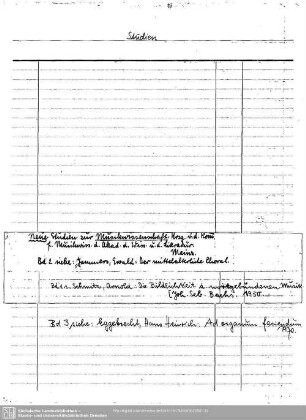 Studien
Neue Studien zur Musikwissenschaft. Hrsg. v. d. Kom.
f. Musikwiss. d. Akad. d. Wiss. u. d. Literatur.
Mainz.
Bd 2 siehe: Jammers, Ewald: Der mittelalterliche Choral.
Bd 1. Schmitz, Arnold: Die Bildlichkeit d. wortgebundenen Musik
Joh. Seb. Bachs. 1950.
Bd 3 siehe: Eggebrecht, Hans Heinrich: Ad organum faciendum
1970.